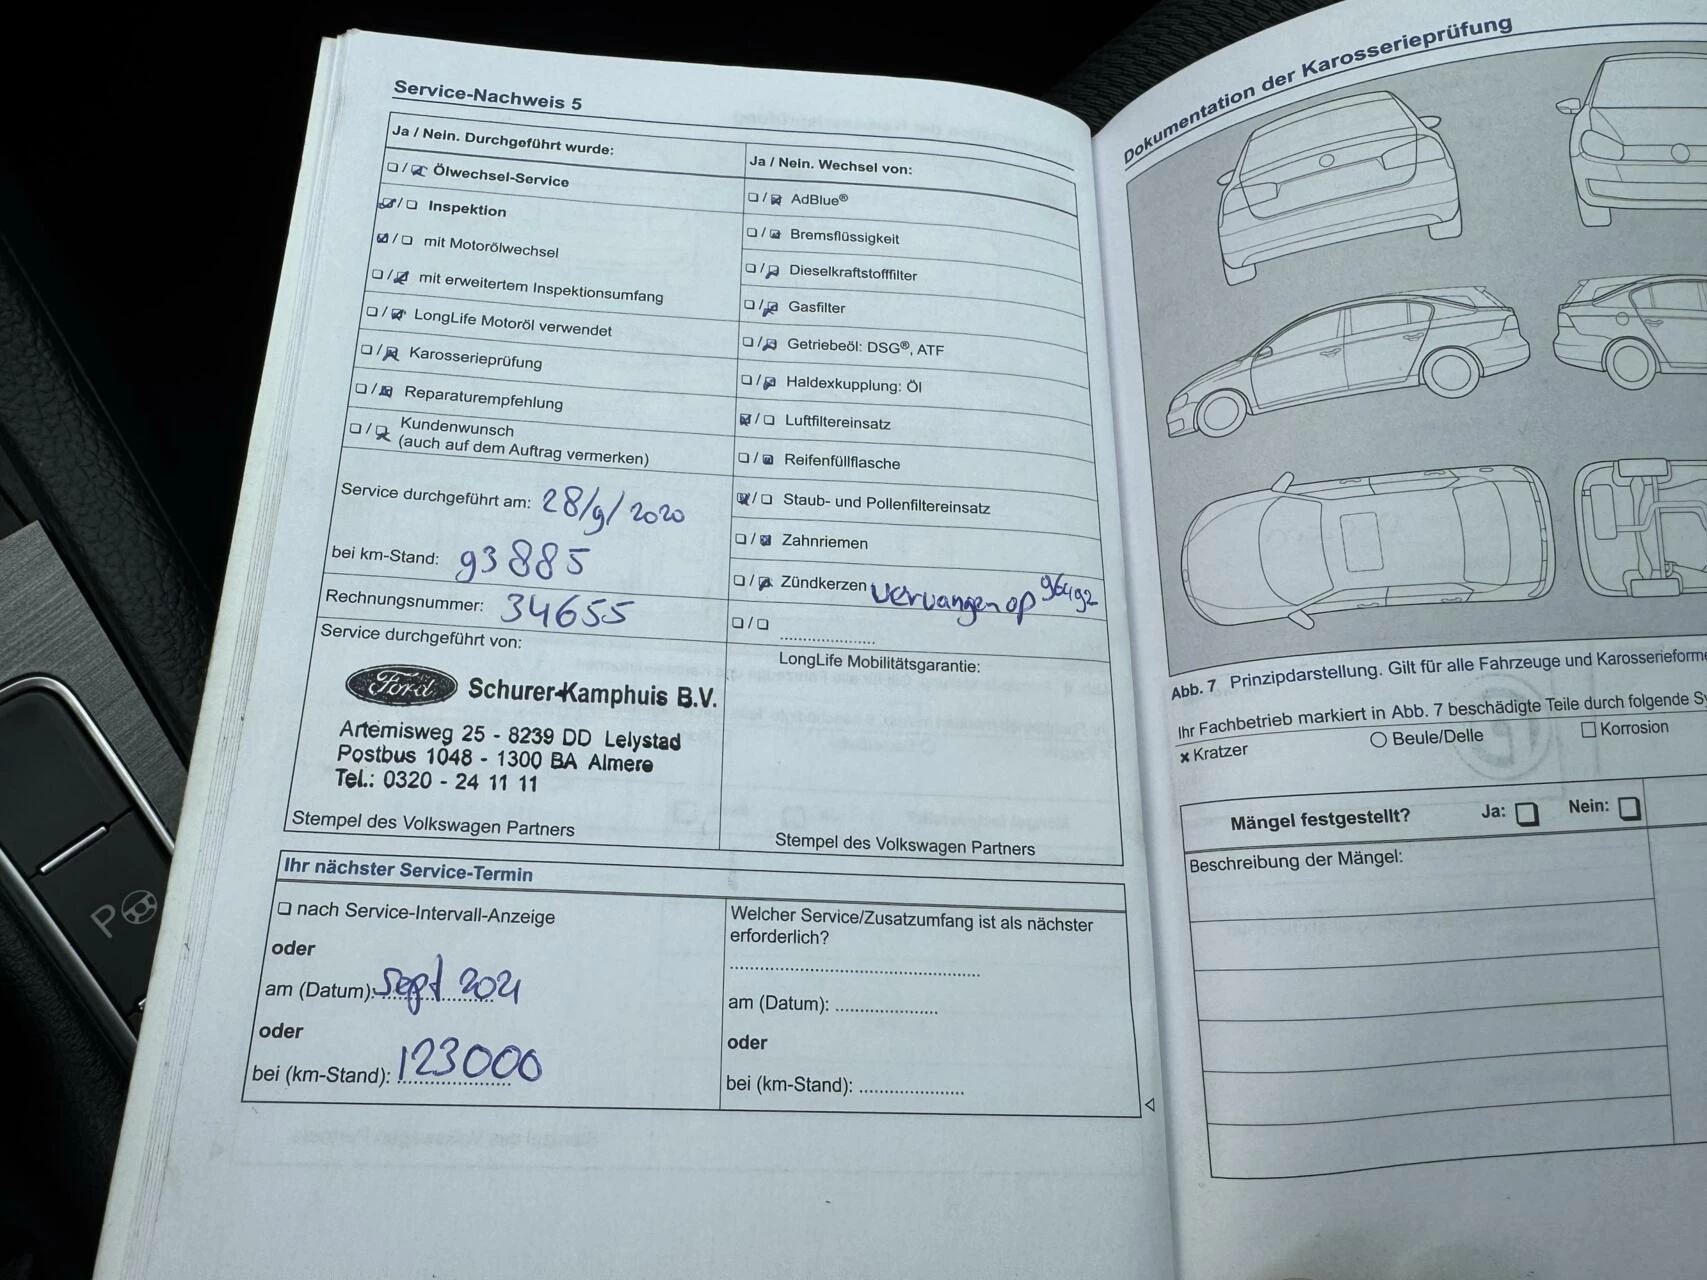 Service-Nachweis 5
Ja / Nein. Durchgeführt wurde:
Ölwechsel-Service
Inspektion
mit Motorölwechsel
mit erweitertem Inspektionsumfang
LongLife Motoröl verwendet
Karosserieprüfung
Reparaturempfehlung
Kundenwunsch
(auch auf dem Auftrag vermerken)
Service durchgeführt am: 28/9/2020
bei km-Stand: 93885
Rechnungsnummer: 34655
Service durchgeführt von:
Ford Schurer-Kamphuis B.V.
Artemisweg 25 - 8239 DD Lelystad
Postbus 1048 - 1300 BA Almere
Tel.: 0320 - 24 11 11
Stempel des Volkswagen Partners
Ja / Nein. Wechsel von:
AdBlue®
Bremsflüssigkeit
Dieselkraftstofffilter
Gasfilter
Getriebeöl: DSG®, ATF
Haldexkupplung: Öl
Luftfiltereinsatz
Reifenfüllflasche
Staub- und Pollenfiltereinsatz
Zahnriemen
Zündkerzen vervangen op 96492
LongLife Mobilitätsgarantie:
Stempel des Volkswagen Partners
Ihr nächster Service-Termin
nach Service-Intervall-Anzeige
oder
am (Datum): sept 2021
oder
bei (km-Stand): 123000
Welcher Service/Zusatzumfang ist als nächster
erforderlich?
am (Datum):
oder
bei (km-Stand):
Dokumentation der Karosserieprüfung
Abb. 7 Prinzipdarstellung. Gilt für alle Fahrzeuge und
Ihr Fachbetrieb markiert in Abb. 7 beschädigte Teile durch folgende
Kratzer
Beule/Delle
Korrosion
Mängel festgestellt? Ja: Nein:
Beschreibung der Mängel:
P